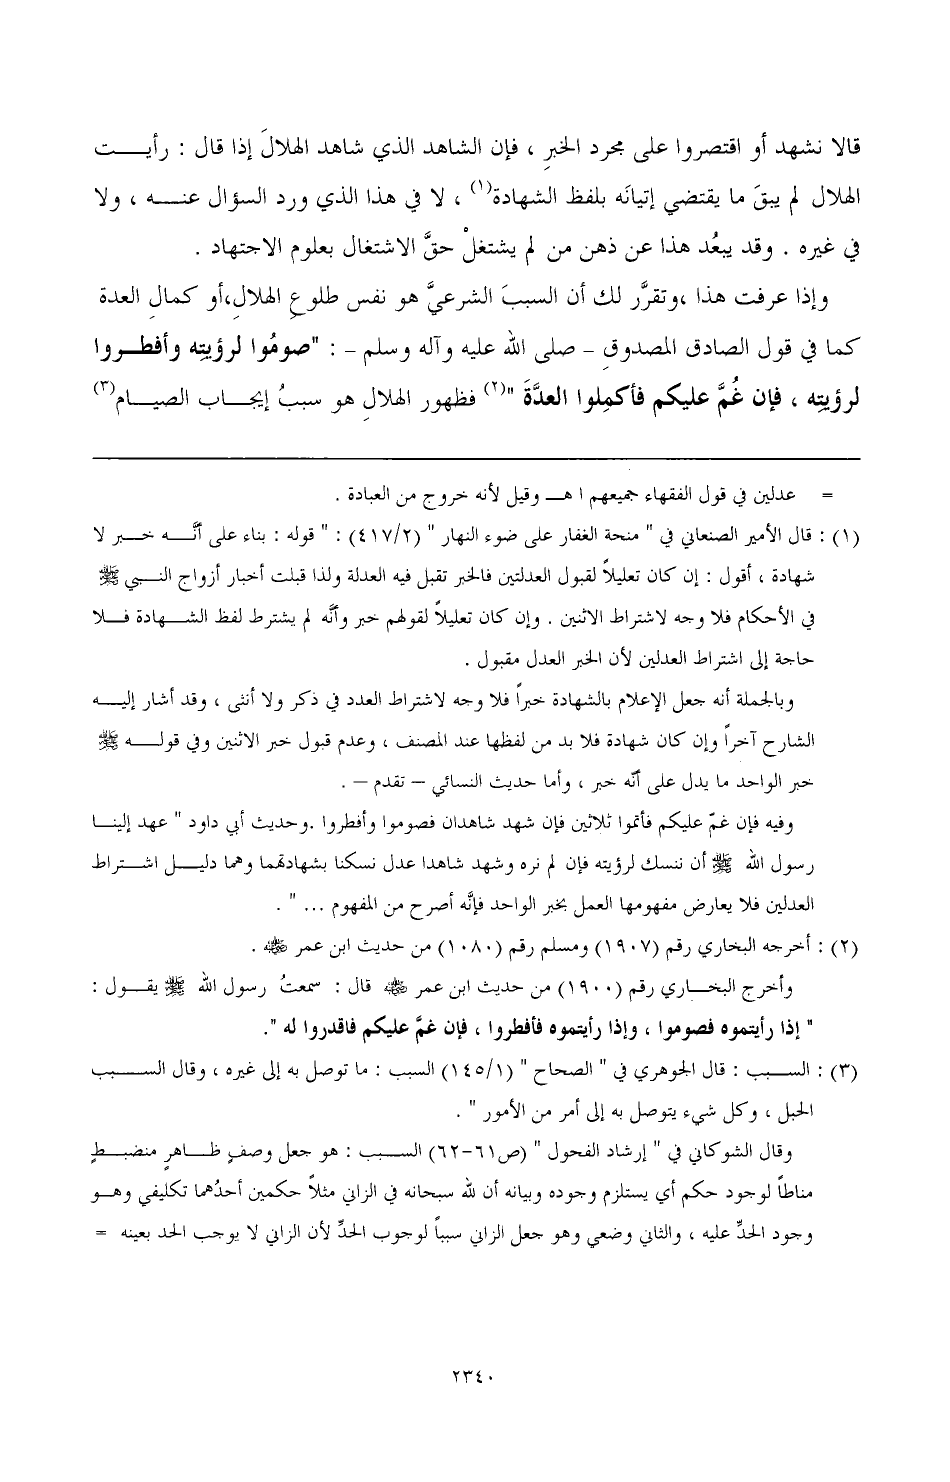 قالا نشهد أو اقتصروا على مجرد الخبرِ ، فإن الشاهد الذي شاهد الهلالَ إذا قال : رأيـــت
الهلال لم يبقَ ما يقتضي إتيانَه بلفظ الشهادة(١) ، لا في هذا الذي ورد السؤال عنـــه ، ولا
في غيره . وقد يبعُد هذا عن ذهن من لم يشتغلْ حقَّ الاشتغال بعلوم الاجتهاد .
وإذا عرفت هذا ،وتقرَّر لك أن السببَ الشرعيَّ هو نفس طلوعِ الهلالِ،أو كمالِ العدة
كما في قول الصادق المصدوقِ – صلى الله عليه وآله وسلم – : "صومُوا لرؤيتِه وأفطـروا
لرؤيتِه ، فإن غُمَّ عليكم فأكمِلوا العدَّةَ "(٢) فظهور الهلالِ هو سببُ إيجـاب الصيـام(٣)
= عدلين في قول الفقهاء جميعهم ا هـ وقيل لأنه خروج من العبادة .
(١) : قال الأمير الصنعاني في " منحة الغفار على ضوء النهار " (٤١٧/٢) : " قوله : بناء على أنَّـــه خـــبر لا
شهادة ، أقول : إن كان تعليلاً لقبول العدلتين فالخبر تقبل فيه العدلة ولذا قبلت أخبار أزواج النـــبي ﷺ
في الأحكام فلا وجه لاشتراط الاثنين . وإن كان تعليلاً لقولهم خبر وأنَّه لم يشترط لفظ الشـــهادة فـــلا
حاجة إلى اشتراط العدلين لأن الخبر العدل مقبول .
وبالجملة أنه جعل الإعلام بالشهادة خبراً فلا وجه لاشتراط العدد في ذكر ولا أنثى ، وقد أشار إليـــه
الشارح آخراً وإن كان شهادة فلا بد من لفظها عند المصنف ، وعدم قبول خبر الاثنين وفي قولـــه ﷺ
خبر الواحد ما يدل على أنّه خبر ، وأما حديث النسائي – تقدم – .
وفيه فإن غمّ عليكم فأتموا ثلاثين فإن شهد شاهدان فصوموا وأفطروا .وحديث أبي داود " عهد إلينـــا
رسول الله ﷺ أن ننسك لرؤيته فإن لم نره وشهد شاهدا عدل نسكنا بشهادتهما وهما دليـــل اشـــتراط
العدلين فلا يعارض مفهومها العمل بخبر الواحد فإنَّه أصرح من المفهوم ... " .
(٢) : أخرجه البخاري رقم (١٩٠٧) ومسلم رقم (١٠٨٠) من حديث ابن عمر ﷺ .
وأخرج البخـــاري رقم (١٩٠٠) من حديث ابن عمر ﷺ قال : سمعتُ رسول الله ﷺ يقـــول :
" إذا رأيتموه فصوموا ، وإذا رأيتموه فأفطروا ، فإن غمَّ عليكم فاقدروا له ".
(٣) : الســـبب : قال الجوهري في " الصحاح " (١٤٥/١) السبب : ما توصل به إلى غيره ، وقال الســـبب
الحبل ، وكل شيء يتوصل به إلى أمر من الأمور " .
وقال الشوكاني في " إرشاد الفحول " (ص٦١-٦٢) الســـبب : هو جعل وصفٍ ظـــاهرٍ منضبـــطٍ
مناطاً لوجود حكم أي يستلزم وجوده وبيانه أن لله سبحانه في الزاني مثلاً حكمين أحدُهما تكليفي وهـــو
وجود الحدِّ عليه ، والثاني وضعي وهو جعل الزاني سبباً لوجوب الحدِّ لأن الزاني لا يوجب الحد بعينه =
٢٣٤٠